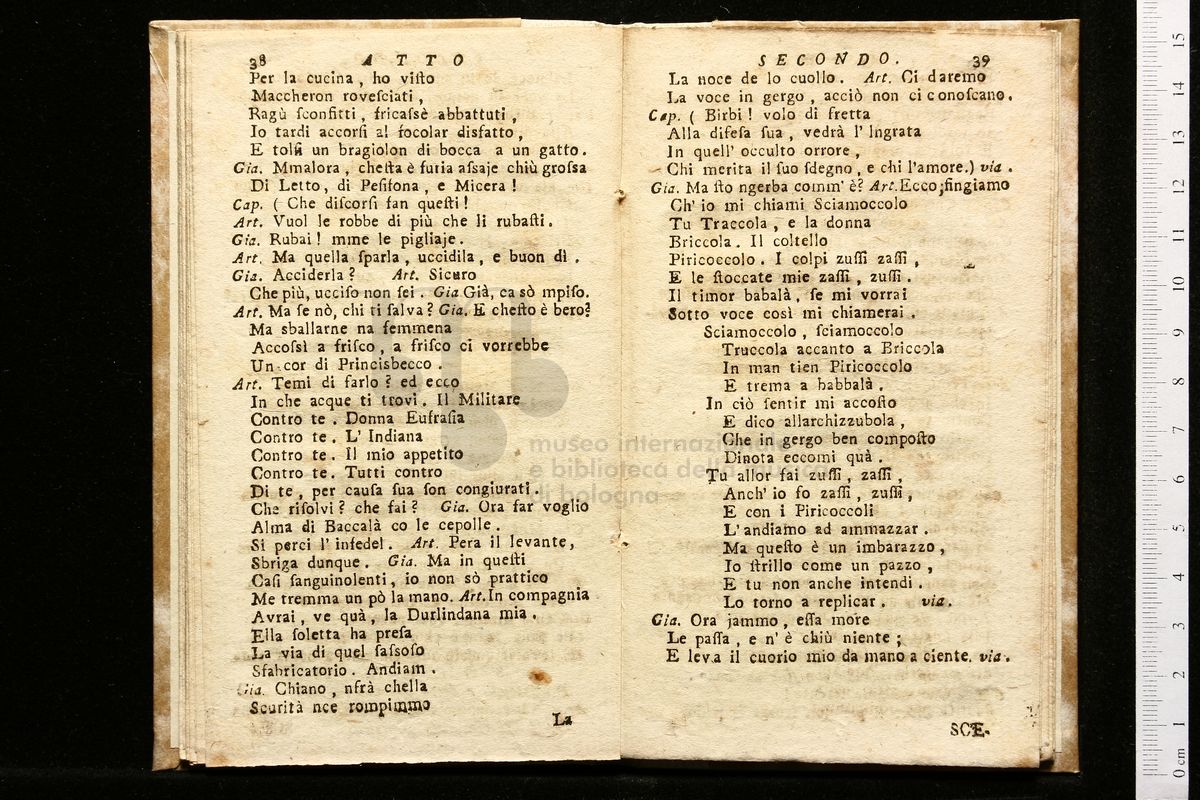 38 ATTO
Per la cucina, ho viſto
Maccheron roveſciati,
Ragù ſconfitti, fricaſsè abbattuti,
Io tardi accorſi al focolar disfatto,
E tolſi un bragiolon di bocca a un gatto.
Gia. Mmalora, cheſta è furia aſsaje chiù groſsa
Di Letto, di Peſiſona, e Micera!
Cap. (Che diſcorſi fan queſti!
Art. Vuol le robbe di più che li rubaſti.
Gia. Rubai! mme le pigliaje.
Art. Ma quella ſparla, uccidila, e buon dì.
Gia. Acciderla? Art. Sicuro
Che più, ucciſo non ſei. Gia Già, ca sò mpiſo.
Art. Ma ſe nò, chi ti ſalva? Gia. E cheſto è bero?
Ma sballarne na femmena
Accoſsì a friſco, a friſco ci vorrebbe
Un cor di Princisbecco.
Art. Temi di farlo? ed ecco
In che acque ti trovi. Il Militare
Contro te. Donna Eufraſia
Contro te. L' Indiana
Contro te. Il mio appetito
Contro te. Tutti contro
Di te, per cauſa ſua ſon congiurati.
Che riſolvi? che fai? Gia. Ora far voglio
Alma di Baccalà co le cepolle.
Si perci l' infedel. Art. Pera il levante,
Sbriga dunque. Gia. Ma in queſti
Caſi ſanguinolenti, io non sò prattico
Me tremma un pò la mano. Art. In compagnia
Avrai, ve quà, la Durlindana mia.
Ella ſoletta ha preſa
La via di quel ſaſsoſo
Sfabricatorio. Andiam.
Gia. Chiano, nfrà chella
Scurità nce rompimmo
La
SECONDO. 39
La noce de lo cuollo. Art. Ci daremo
La voce in gergo, acciò non ci conoſcano.
Cap. (Birbi! volo di fretta
Alla difeſa ſua, vedrà l' Ingrata
In quell' occulto orrore,
Chi merita il ſuo ſdegno, e chi l'amore.) via.
Gia. Ma ſto ngerba comm' è? Art. Ecco; fingiamo
Ch' io mi chiami Sciamoccolo
Tu Traccola, e la donna
Briccola. Il coltello
Piricoccolo. I colpi zuſſi zaſſi,
E le ſtoccate mie zaſſi, zuſſi.
Il timor babalà, ſe mi vorrai
Sotto voce così mi chiamerai.
Sciamoccolo, ſciamoccolo
Truccola accanto a Briccola
In man tien Piricoccolo
E trema a babbalà.
In ciò ſentir mi accoſto
E dico allarchizzubola,
Che in gergo ben compoſto
Dinota eccomi quà.
Tu allor fai zuſſi, zaſſi,
Anch' io fo zaſſi, zuſſi,
E con i Piricoccoli
L'andiamo ad ammazzar.
Ma queſto è un imbarazzo,
Io ſtrillo come un pazzo,
E tu non anche intendi.
Lo torno a replicar. via.
Gia. Ora jammo, eſſa more
Le paſſa, e n' è chiù niente;
E leva il cuorio mio da mano a ciente. via.
SCE-
museo internazionale
e biblioteca della musica
di bologna
0 cm 1 2 3 4 5 6 7 8 9 10 11 12 13 14 15